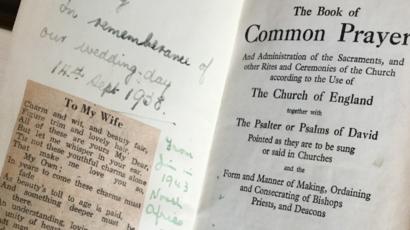 In remembrance of
our wedding-day
14th Sept 1938.
To My Wife
Charm and wit, and beauty fair,
Figure trim and lovely hair,
All of these are yours My Dear,
But let me whisper in my ear.
That not these youthful charms alone
make me love you so,
My Own;
In years to come these charms must
fade,
As beauty's toll to age is paid,
And something deeper must be
there
An understanding, love
unity of hear
From
Jim in
1943
North
Africa
The Book of
Common Prayer
And Administration of the Sacraments, and
other Rites and Ceremonies of the Church
according to the Use of
The Church of England
together with
The Psalter or Psalms of David
Pointed as they are to be sung
or said in Churches
and the
Form and Manner of Making, Ordaining
and Consecrating of Bishops
Priests, and Deacons